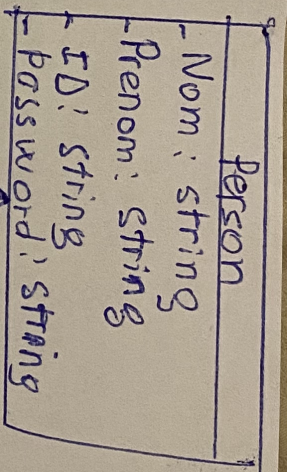 Person
- Nom : string
- Prenom : string
- ID : string
- Password : string